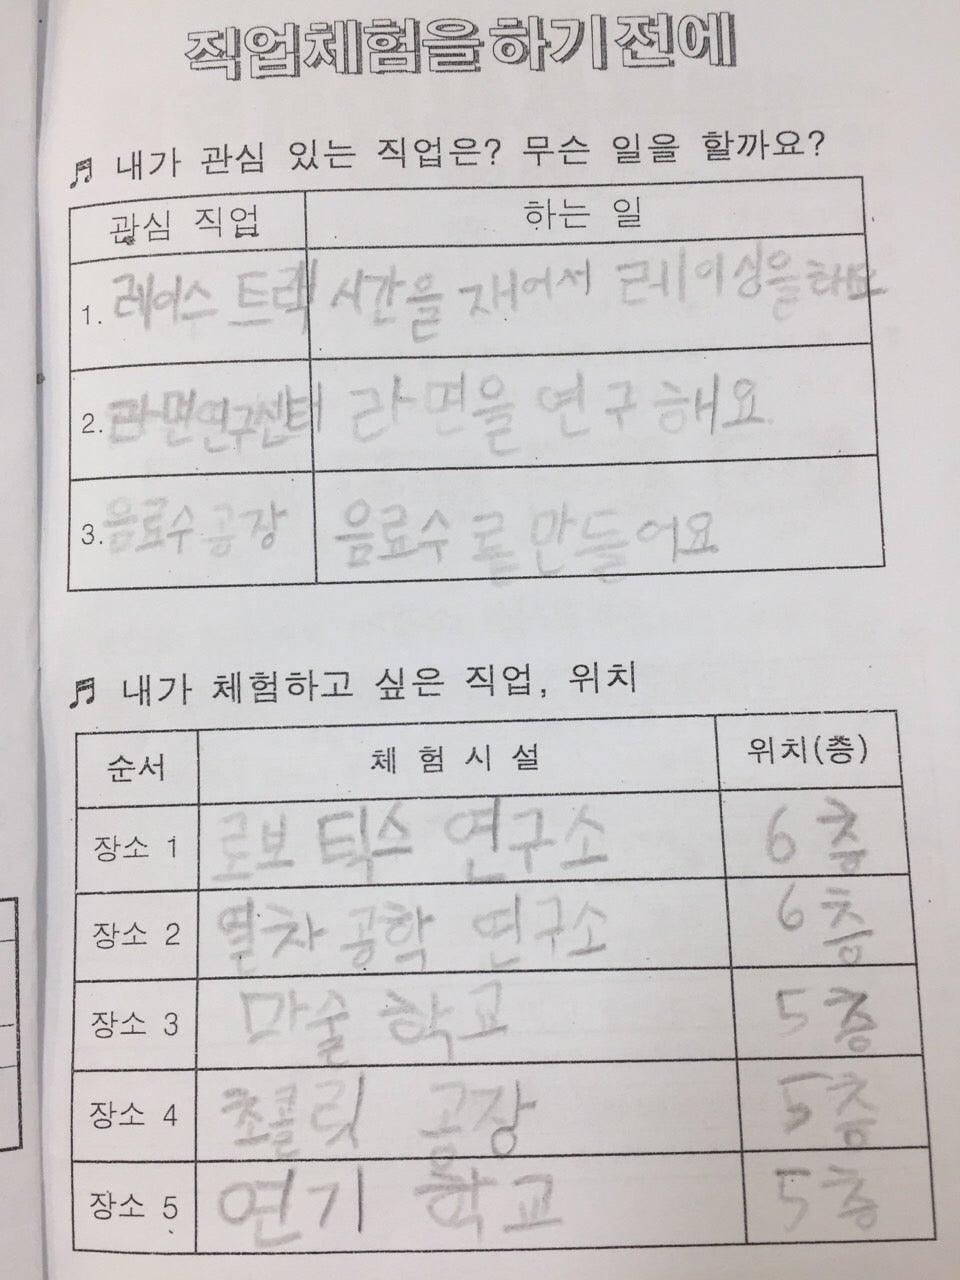 직업체험을하기전에
♬ 내가 관심 있는 직업은? 무슨 일을 할까요?
관심 직업 하는 일
1. 레이스 트랙 시간을 재어서 레이싱을 해요
2. 라면연구센터 라면을 연구해요.
3. 음료수 공장 음료수를 만들어요
♬ 내가 체험하고 싶은 직업, 위치
순서 체험시설 위치(층)
장소 1 로보틱스 연구소 6층
장소 2 열차 공학 연구소 6층
장소 3 마술 학교 5층
장소 4 초콜릿 공장 5층
장소 5 연기 학교 5층